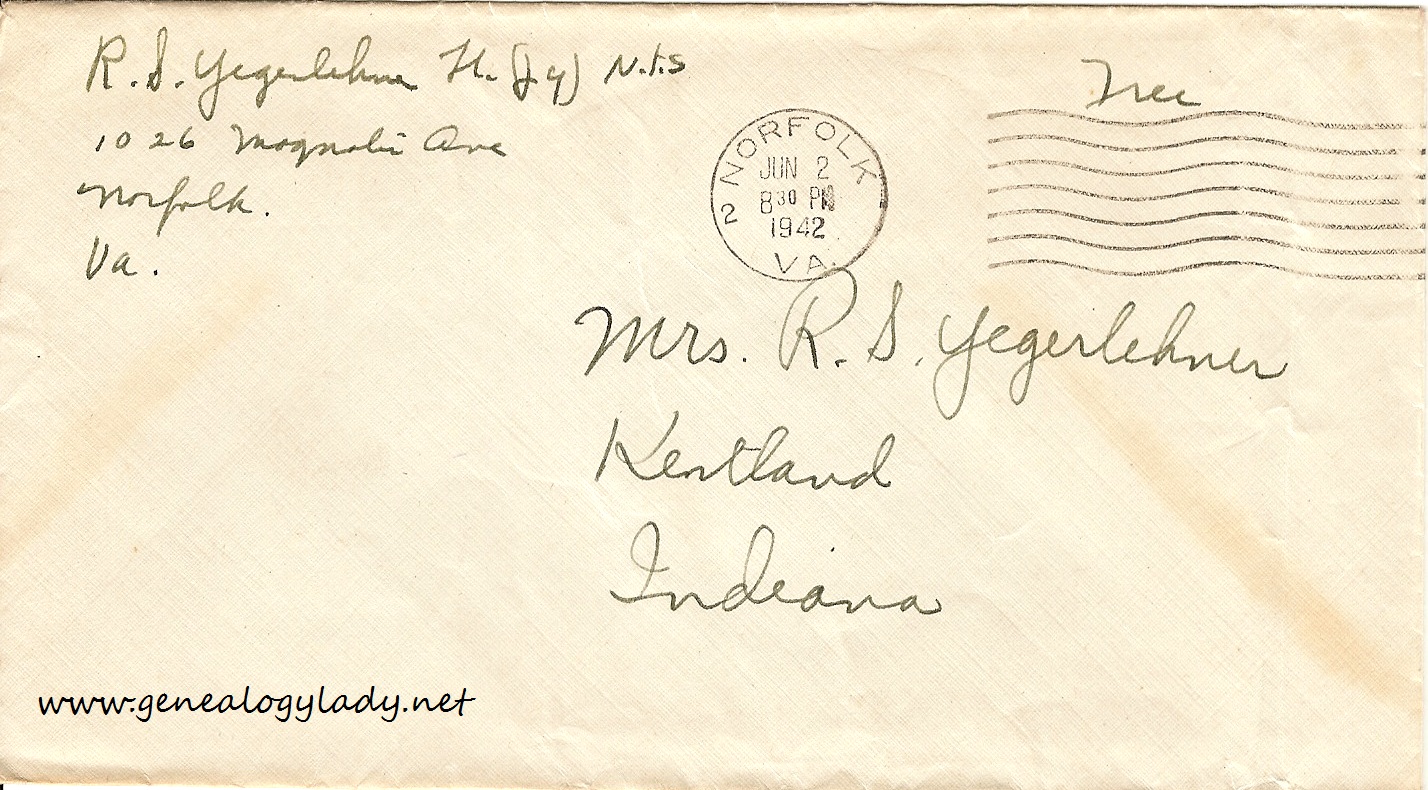 R. S. Yegerlehner Lt. (jg) N.T.S
1026 Magnolia Ave
Norfolk.
Va.
Free
2 NORFOLK VA.
JUN 2
8 30 PM
1942
Mrs. R. S. Yegerlehner
Kentland
Indiana
www.genealogylady.net